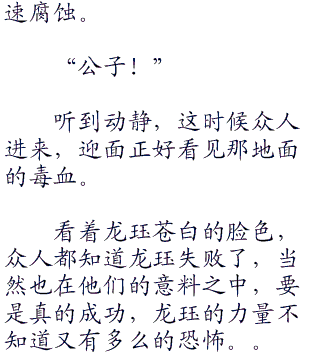 速腐蚀。
“公子！”
听到动静，这时候众人
进来，迎面正好看见那地面
的毒血。
看着龙珏苍白的脸色，
众人都知道龙珏失败了，当
然也在他们的意料之中，要
是真的成功，龙珏的力量不
知道又有多么的恐怖。。